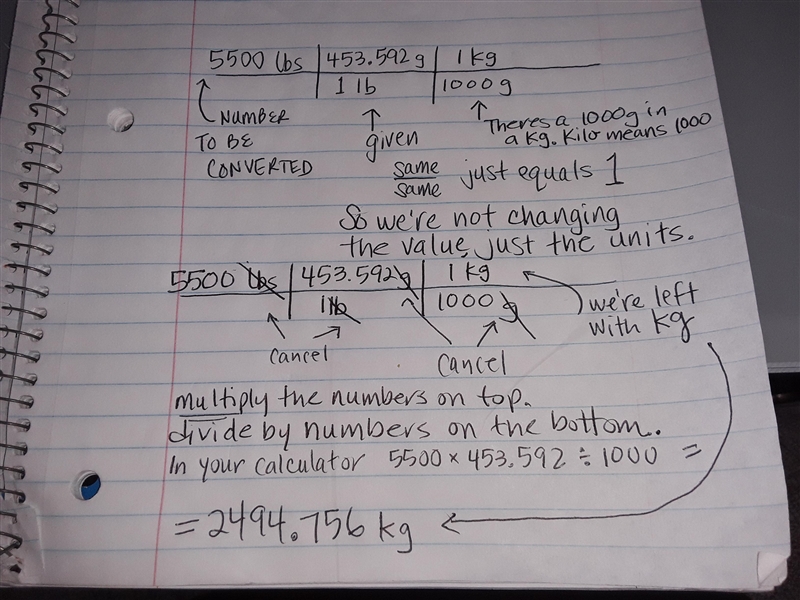 5500 lbs | 453.592 g | 1 kg
1 lb | 1000 g
NUMBER
TO BE
CONVERTED
given
Theres a 1000g in
a kg. Kilo means 1000
same
same
just equals 1
So we're not changing
the value, just the units.
5500 lbs | 453.592 g | 1 kg
1 lb | 1000 g
we're left
with kg
cancel
cancel
multiply the numbers on top.
divide by numbers on the bottom.
In your calculator 5500 × 453.592 ÷ 1000 =
= 2494.756 kg